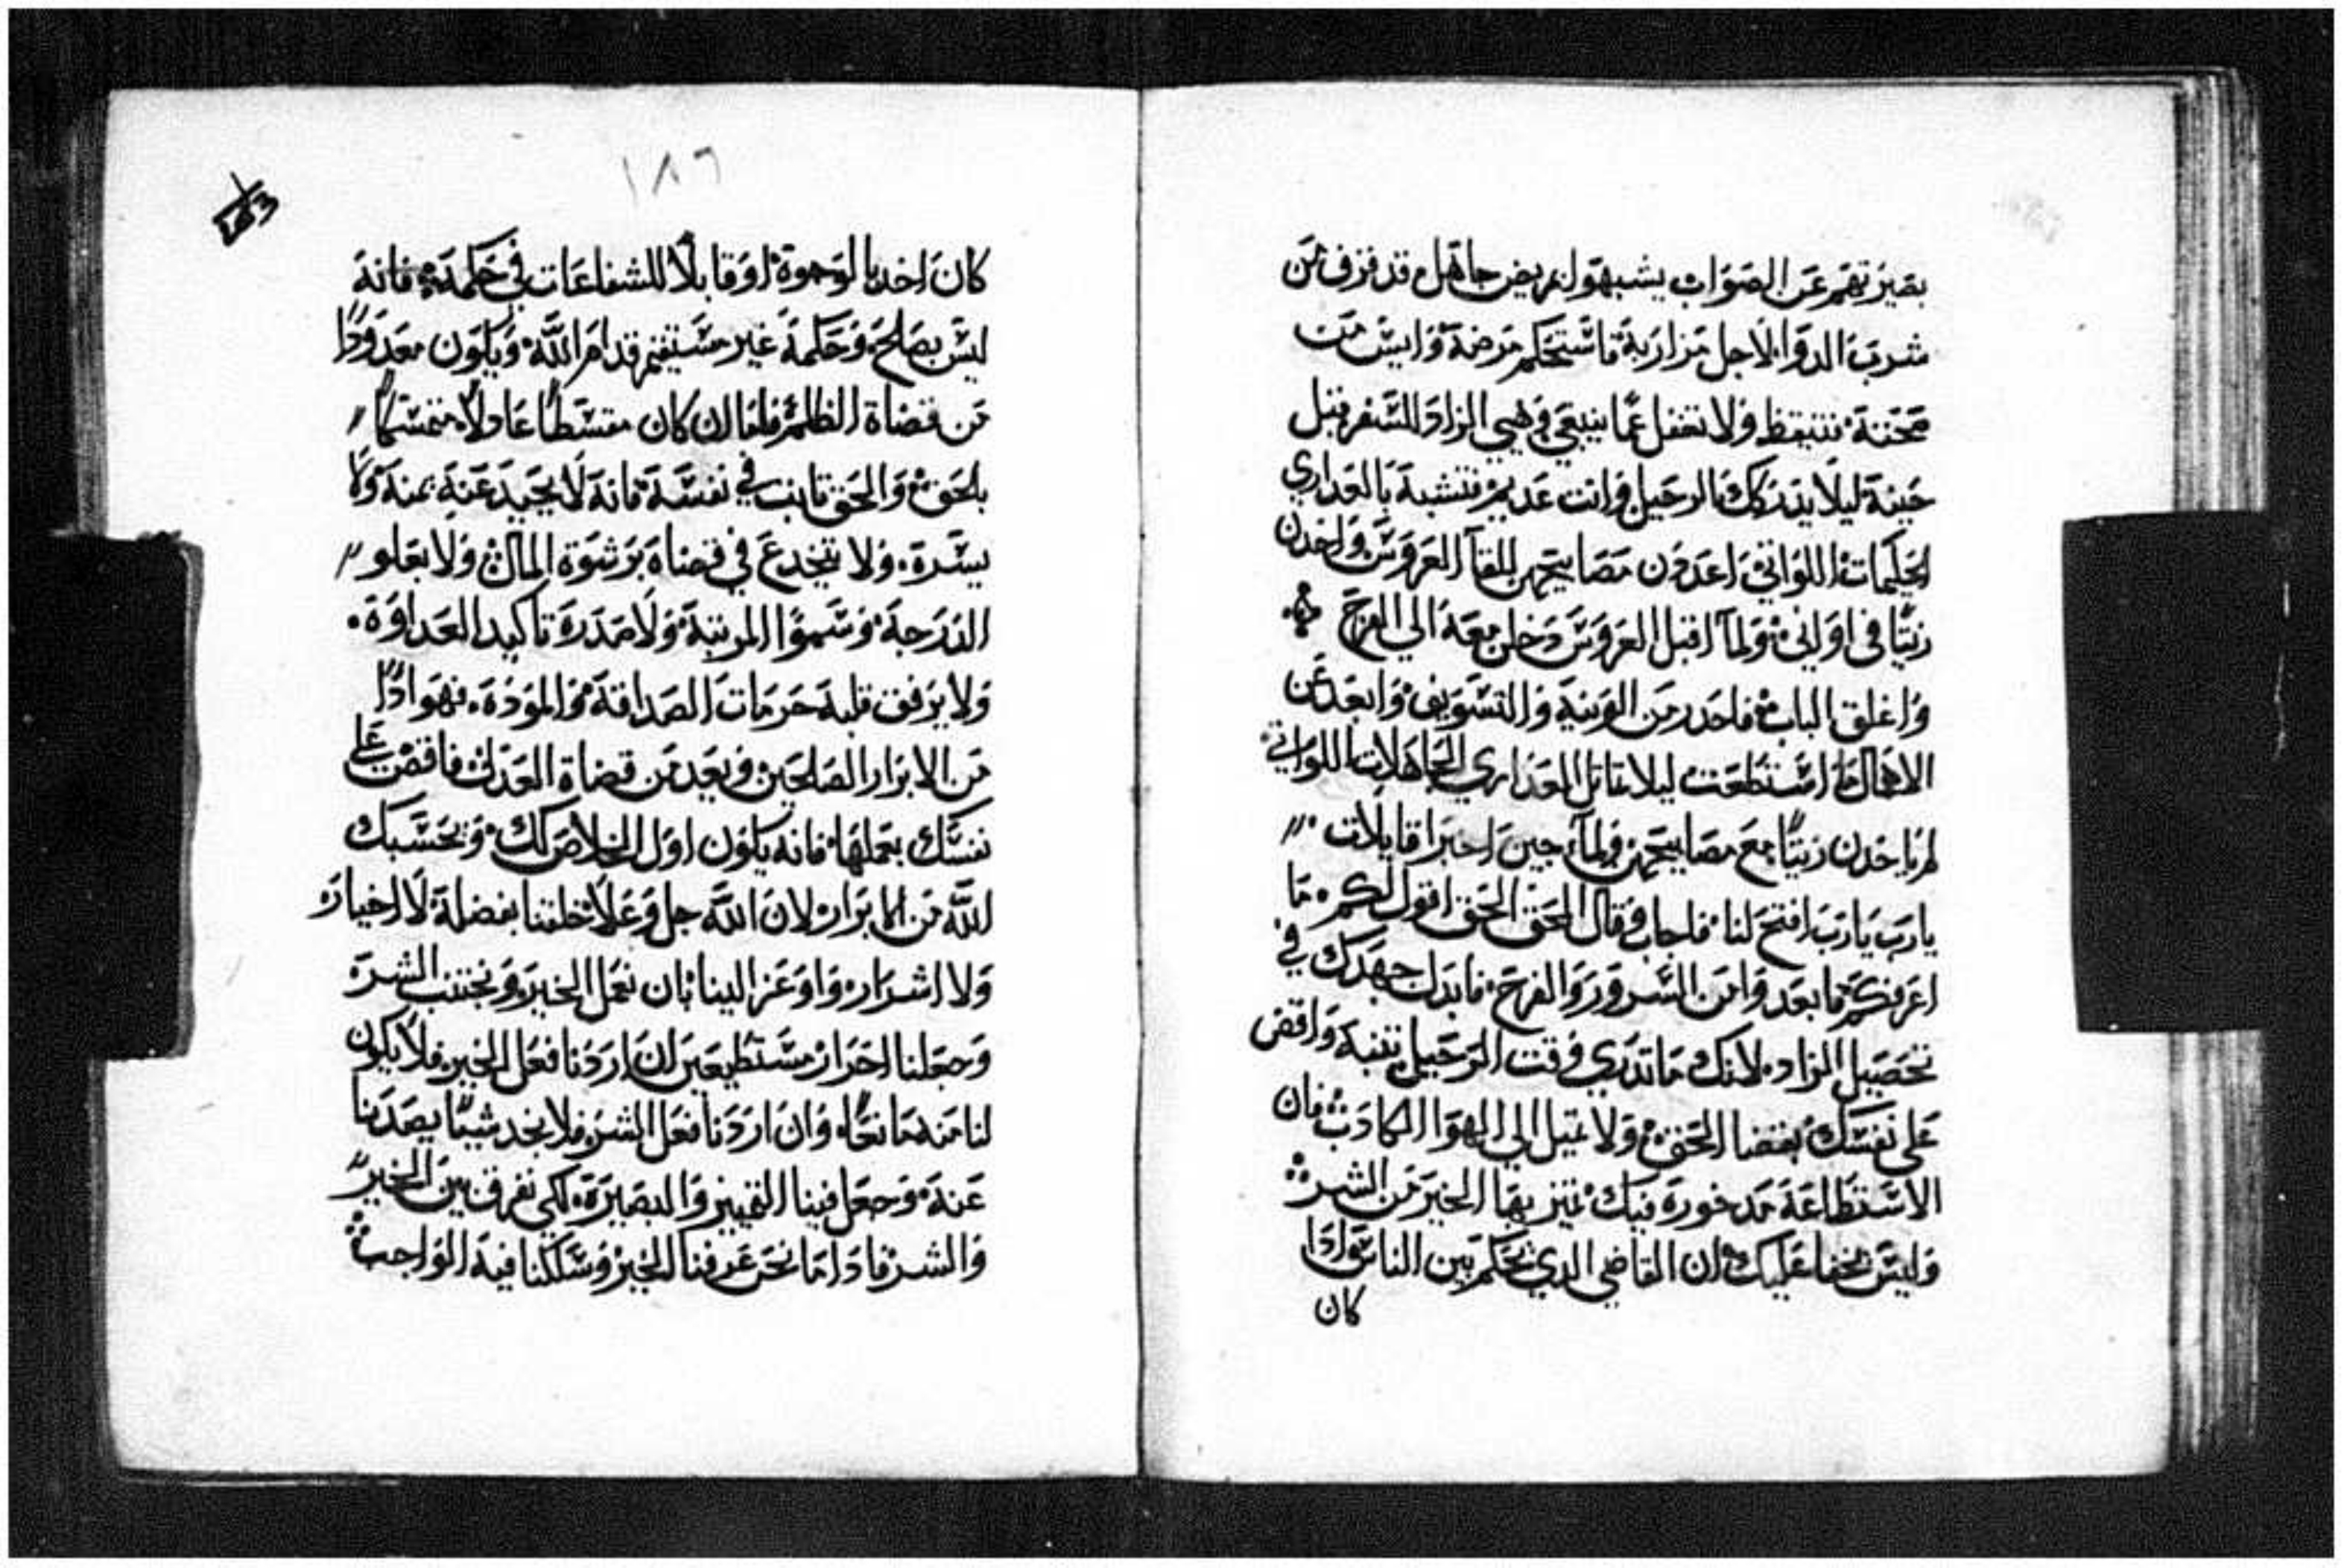 بصيرتهم عن الصواب يشبهوا مريض جاهل قد فزف من
شرب الدوا لاجل مزاربة فاستحكم مرضه وايس من
صحته فتيقظ ولا تغفل عما ينبغي وهيي الزاد للسفر قبل
حينه ليلا يدركك الرحيل وانت عديم فتشبه بالعداري
الحكيمات اللواتي اعددن مصابيحهن للقآ العروس واخدن
زيتا في اواني ولمآ اقبل العروس دخلن معه الي الفرح
واغلق الباب فاحدر من الونية والتسويف وابعد عن
الاهمال ما استطعت ليلا تماتل العداري الجاهلات اللواتي
لم ياخدن زيتا مع مصابيحهن ولمآ جين اخيرا قايلات
يارب يارب افتح لنا فاجاب وقال الحق الحق اقول لكم ما
اعرفكم فما بعد وامن السرور والفرح فابدل جهدك في
تحصيل الزاد لانك ما تدري وقت الرحيل تنبه واقض
علي نفسك بقضا الحق ولا تميل الي الهوا الكادب فان
الاستطاعة مدخورة فيك تميز بها الخير من الشر
وليس يخفا عليك ان القاضي الدي يحكم بين الناس ادا
كان
١٨٦
كان اخد بالوجوة او قابلا للشفاعات في حكمه فانه
ليس بصلح وحكمه غير مستقيم قدام الله ويكون معدودا
من قضاة الظلم فاما ان كان مقسطا عادلا متمسكا
بالحق والحق تابت في نفسه فانه لا يحيد عنه يمنه ولا
يسره ولا ينخدع في قضاه برشوة المال ولا بعلو
الدرجة وسموا المرتبة ولا صدره تاكيد العداوة
ولا يرفق قلبه حرمات الصداقة والمودة فهو ادا
من الابرار الصالحين ويعد من قضاة العدل فاقض علي
نفسك بعملها فانه يكون اول الخلاص لك وتحسبك
الله من الابرار لان الله جل وعلا خلقنا بفضله لا اخياره
ولا اشراره واوعز الينا بان نعمل الخير ونجتنب الشر
وجعلنا احرار مستطيعين ان اردنا فعل الخير فلا يكون
لنا منه مانعا وان اردنا فعل الشر فلا نجد شيا يصدنا
عنه وجعل فينا التمييز والبصيرة لكي نفرق بين الخير
والشر فادا ما نحن عرفنا الخير وسلكنا فيه الواجب